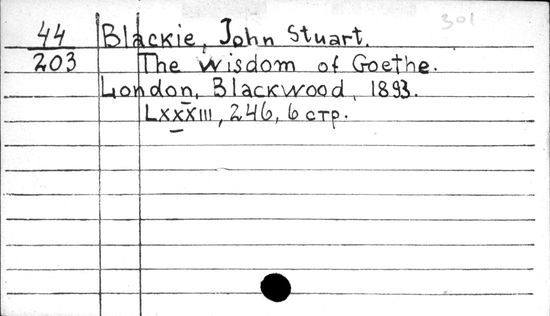 301
44 Blackie, John Stuart.
203 The wisdom of Goethe.
London, Blackwood, 1893.
LXXXIII, 246, 6 стр.